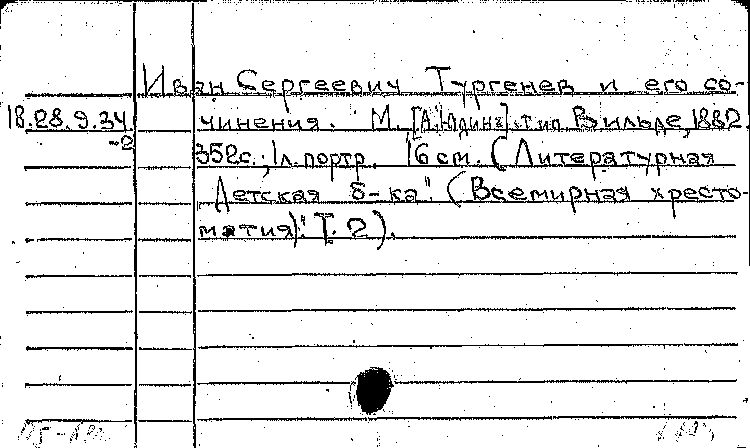 Иван Сергеевич Тургенев и его со-
18.28.9.34 чинения. М. [А. Юдин], тип. Вильде, 1882.
-2 352с.; 1л. портр. 16 см. (Литературная
Детская б-ка". (Всемирная хресто-
матия)". Т. 2).